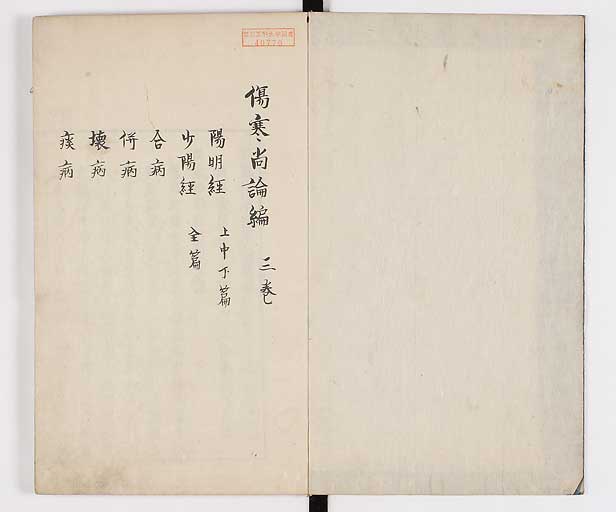 傷寒尚論編 三巻
陽明經 上中下篇
少陽經 全篇
合病
併病
壞病
痰病
40770